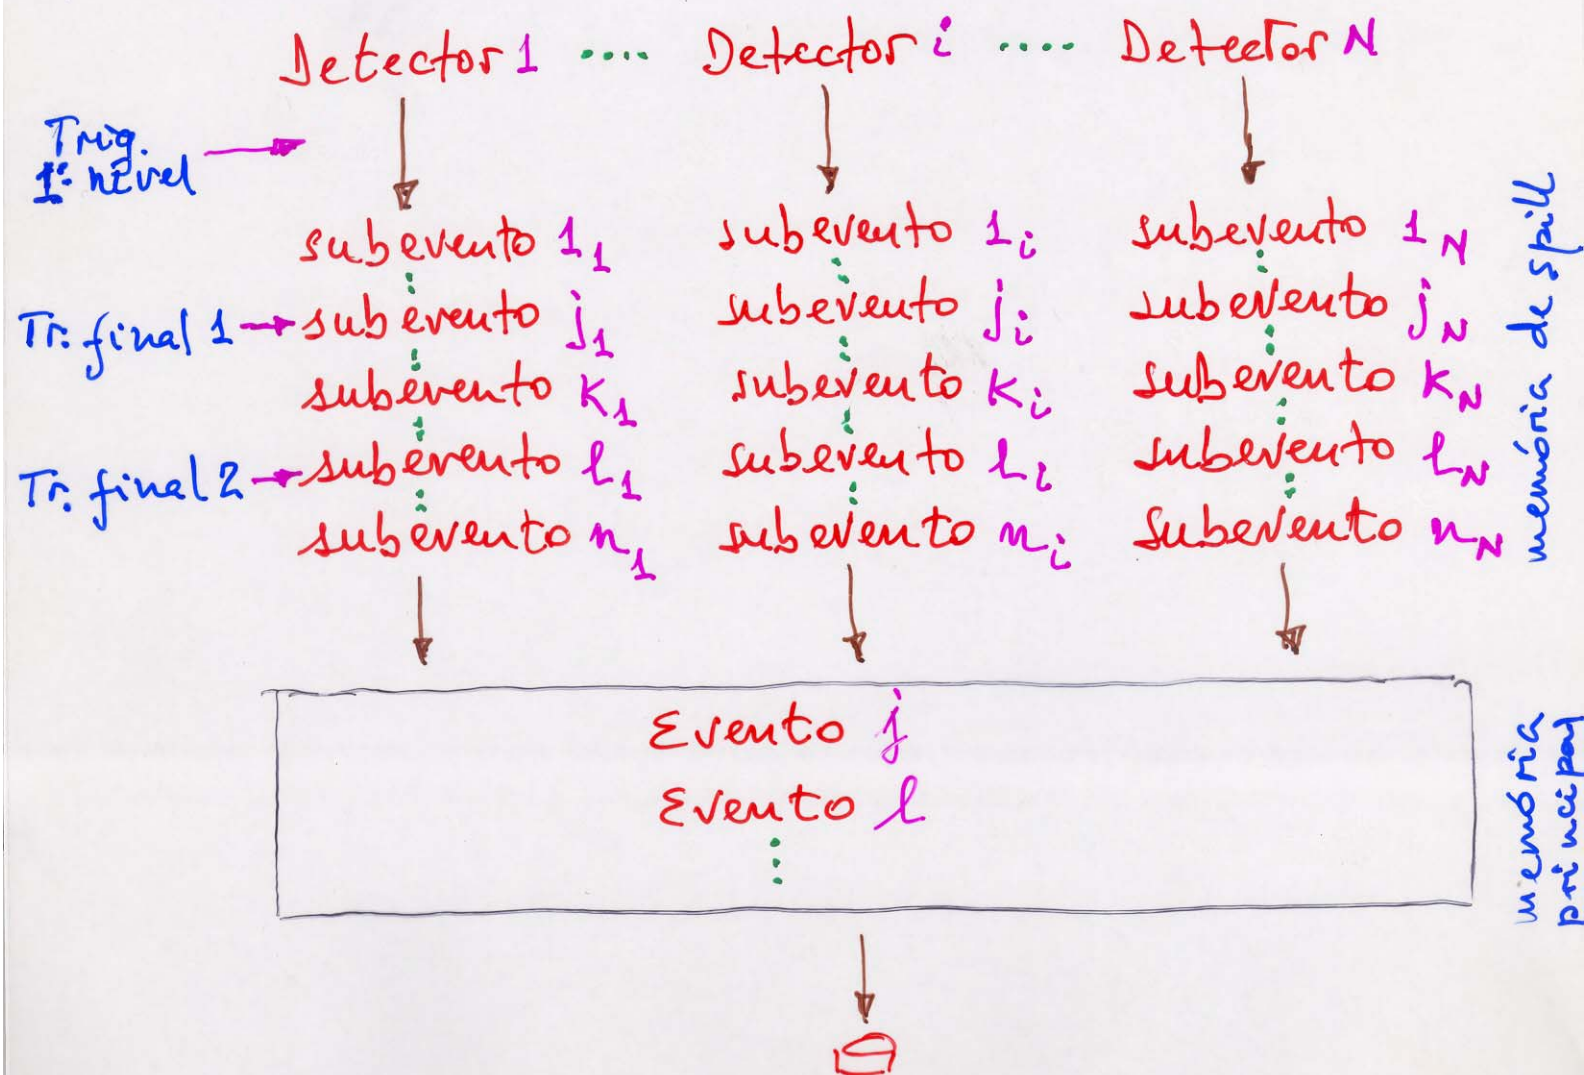 Detector 1 .... Detector i .... Detector N
Trig.
1º nível
subevento 1₁ subevento 1ᵢ subevento 1_N
Tr. final 1 → subevento j₁ subevento jᵢ subevento j_N
subevento k₁ subevento kᵢ subevento k_N
Tr. final 2 → subevento l₁ subevento lᵢ subevento l_N
subevento n₁ subevento nᵢ subevento n_N
memória de spill
Evento j
Evento l
memória
principal